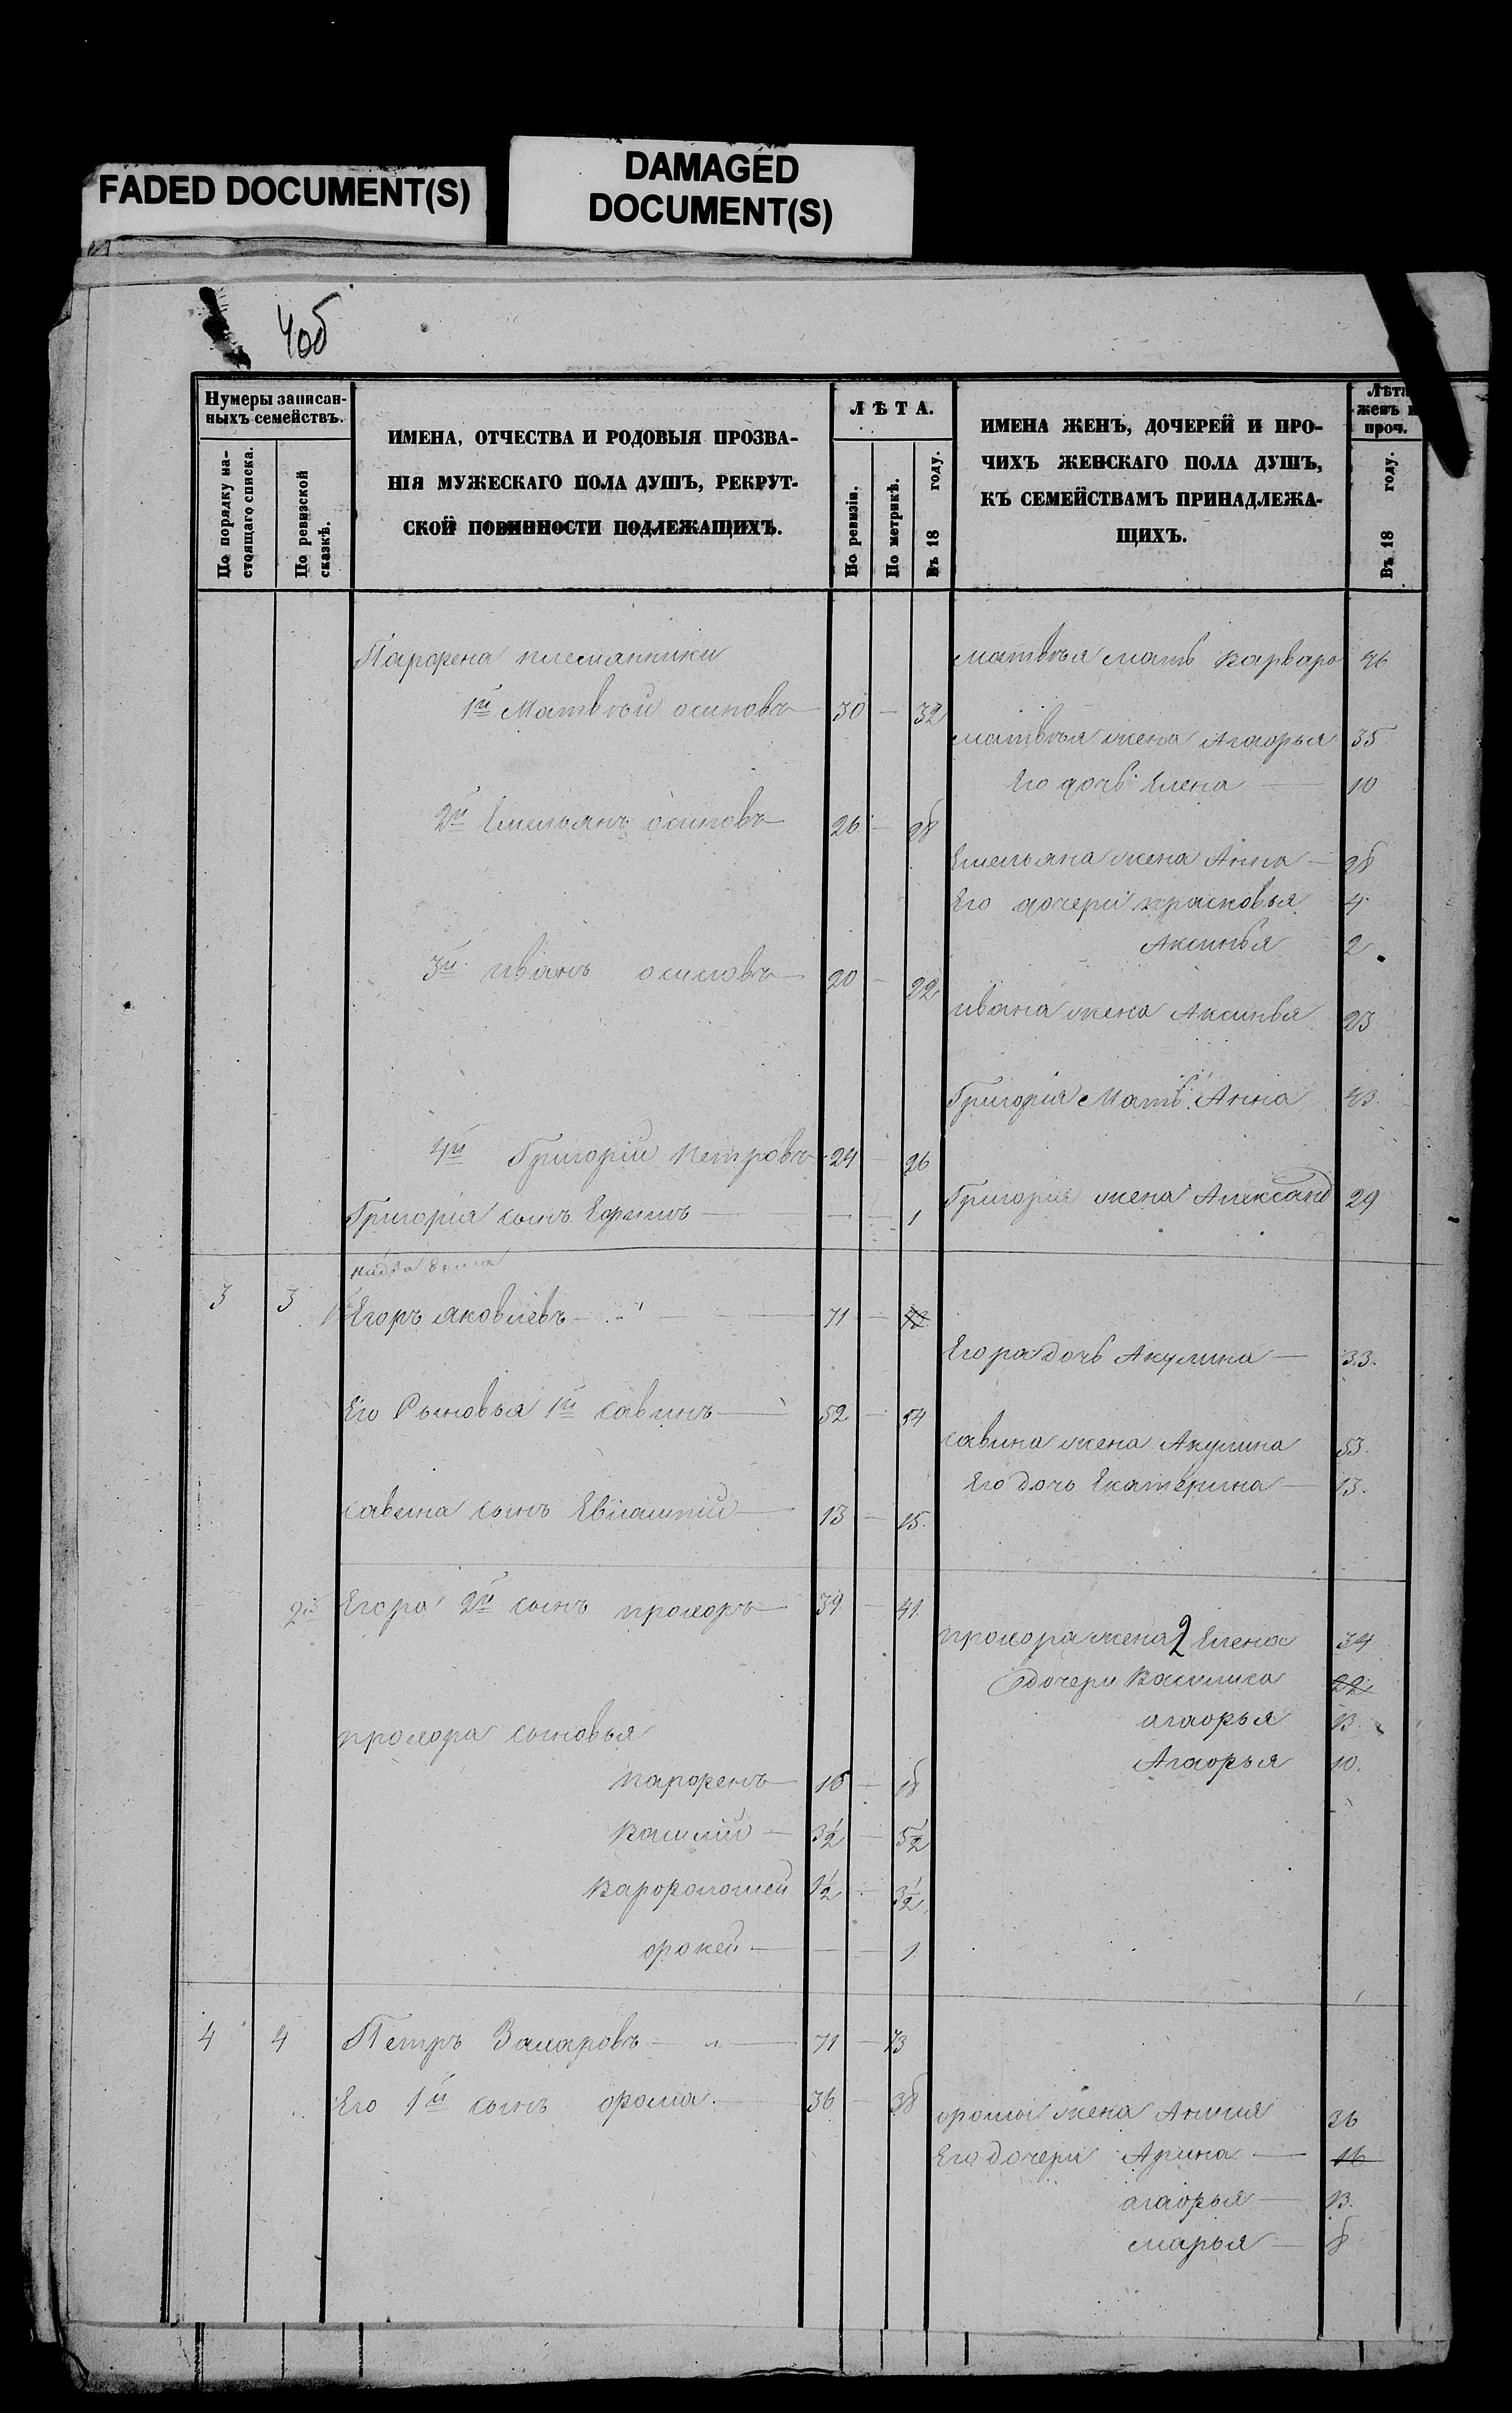 FADED DOCUMENT(S)
DAMAGED
DOCUMENT(S)
4об
Нумеры записан-
ныхъ семействъ.
По порядку на-
стоящаго списка.
По ревизской
сказкѣ.
ИМЕНА, ОТЧЕСТВА И РОДОВЫЯ ПРОЗВА-
НІЯ МУЖЕСКАГО ПОЛА ДУШЪ, РЕКРУТ-
СКОЙ ПОВИННОСТИ ПОДЛЕЖАЩИХЪ.
ЛѢТА.
По ревизіи.
По метрикѣ.
Въ 18 году.
ИМЕНА ЖЕНЪ, ДОЧЕРЕЙ И ПРО-
ЧИХЪ ЖЕНСКАГО ПОЛА ДУШЪ,
КЪ СЕМЕЙСТВАМЪ ПРИНАДЛЕЖА-
ЩИХЪ.
Лѣта
женъ и
проч.
Въ 18 году.
Парфена племянники
матвѣя мать варвара
1й Матвѣй осиповъ 30 — 32
матвѣя жена Агафья 35
Его дочь Елена — 10
2й Емельянъ осиповъ 26 — 28
Емельяна жена Анна — 28
Его дочери прасковья 4
Аксинья 2
3й иванъ осиповъ 20 — 22
ивана жена Аксинья 23
Григорія Мать Анна 43
4й Григорій петровъ 24 — 26
Григорія жена Александ 29
Григорія сынъ Ефимъ — — — 1
3 3 1й Егоръ яковлевъ — 71 —
Егора дочь Акулина — 33.
Его Сыновья 1й савинъ — 52 — 54
савина жена Акулина 53.
Его дочь Екатерина — 13.
савина сынъ Евлампій — 13 — 15.
2й Егора 2й сынъ прохоръ 39 — 41.
прохора жена 2 Елена 34
дочери Василиса 22
агафья 13.
Агафья 10.
прохора сыновья
парфенъ — 16 — 18
Василій — 3½ — 5½
Варфоломей 1½ — 3½
фокей — — — 1
4 4 Петръ Захаровъ — 71 — 73
Его 1й сынъ фома. — 36 — 38
фомы жена Анисия 36
Его дочери Арина — 16
агафья — 13.
марья — 8